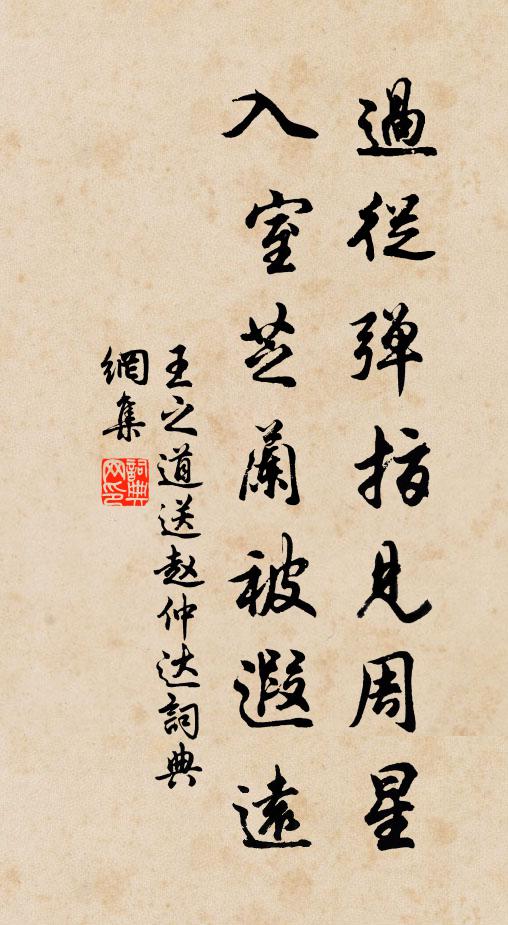 過從弹指見周星
入室芝蘭被遐遠
王之道送赵仲达詞典
網集
詞典
网印